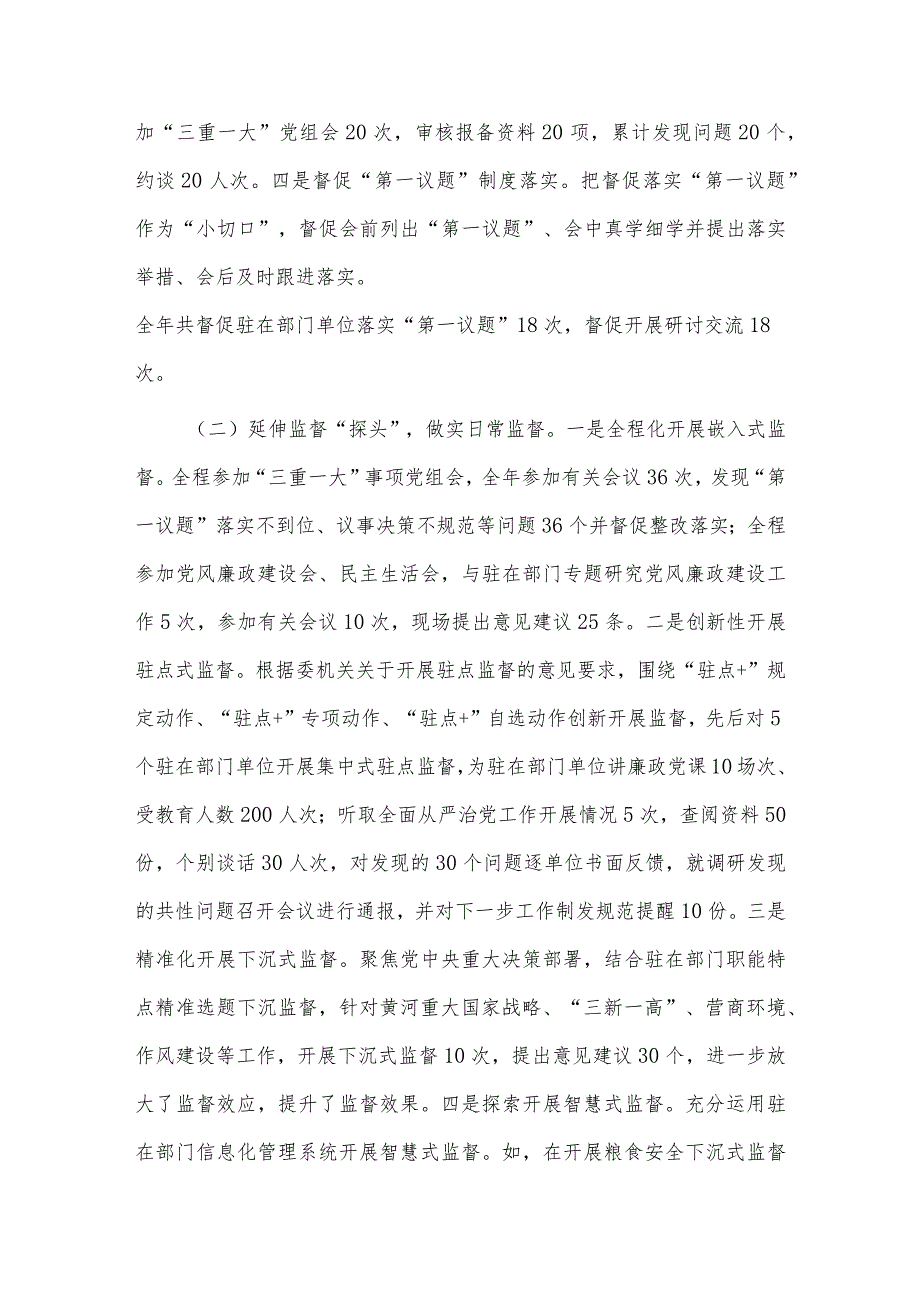 加“三重一大”党组会20次，审核报备资料20项，累计发现问题20个，
约谈20人次。四是督促“第一议题”制度落实。把督促落实“第一议题”
作为“小切口”，督促会前列出“第一议题”、会中真学细学并提出落实
举措、会后及时跟进落实。
全年共督促驻在部门单位落实“第一议题”18次，督促开展研讨交流18
次。
（二）延伸监督“探头”，做实日常监督。一是全程化开展嵌入式监
督。全程参加“三重一大”事项党组会，全年参加有关会议36次，发现“第
一议题”落实不到位、议事决策不规范等问题36个并督促整改落实；全程
参加党风廉政建设会、民主生活会，与驻在部门专题研究党风廉政建设工
作5次，参加有关会议10次，现场提出意见建议25条。二是创新性开展
驻点式监督。根据委机关关于开展驻点监督的意见要求，围绕“驻点+”规
定动作、“驻点+”专项动作、“驻点+”自选动作创新开展监督，先后对5
个驻在部门单位开展集中式驻点监督，为驻在部门单位讲廉政党课10场次、
受教育人数200人次；听取全面从严治党工作开展情况5次，查阅资料50
份，个别谈话30人次，对发现的30个问题逐单位书面反馈，就调研发现
的共性问题召开会议进行通报，并对下一步工作制发规范提醒10份。三是
精准化开展下沉式监督。聚焦党中央重大决策部署，结合驻在部门职能特
点精准选题下沉监督，针对黄河重大国家战略、“三新一高”、营商环境、
作风建设等工作，开展下沉式监督10次，提出意见建议30个，进一步放
大了监督效应，提升了监督效果。四是探索开展智慧式监督。充分运用驻
在部门信息化管理系统开展智慧式监督。如，在开展粮食安全下沉式监督